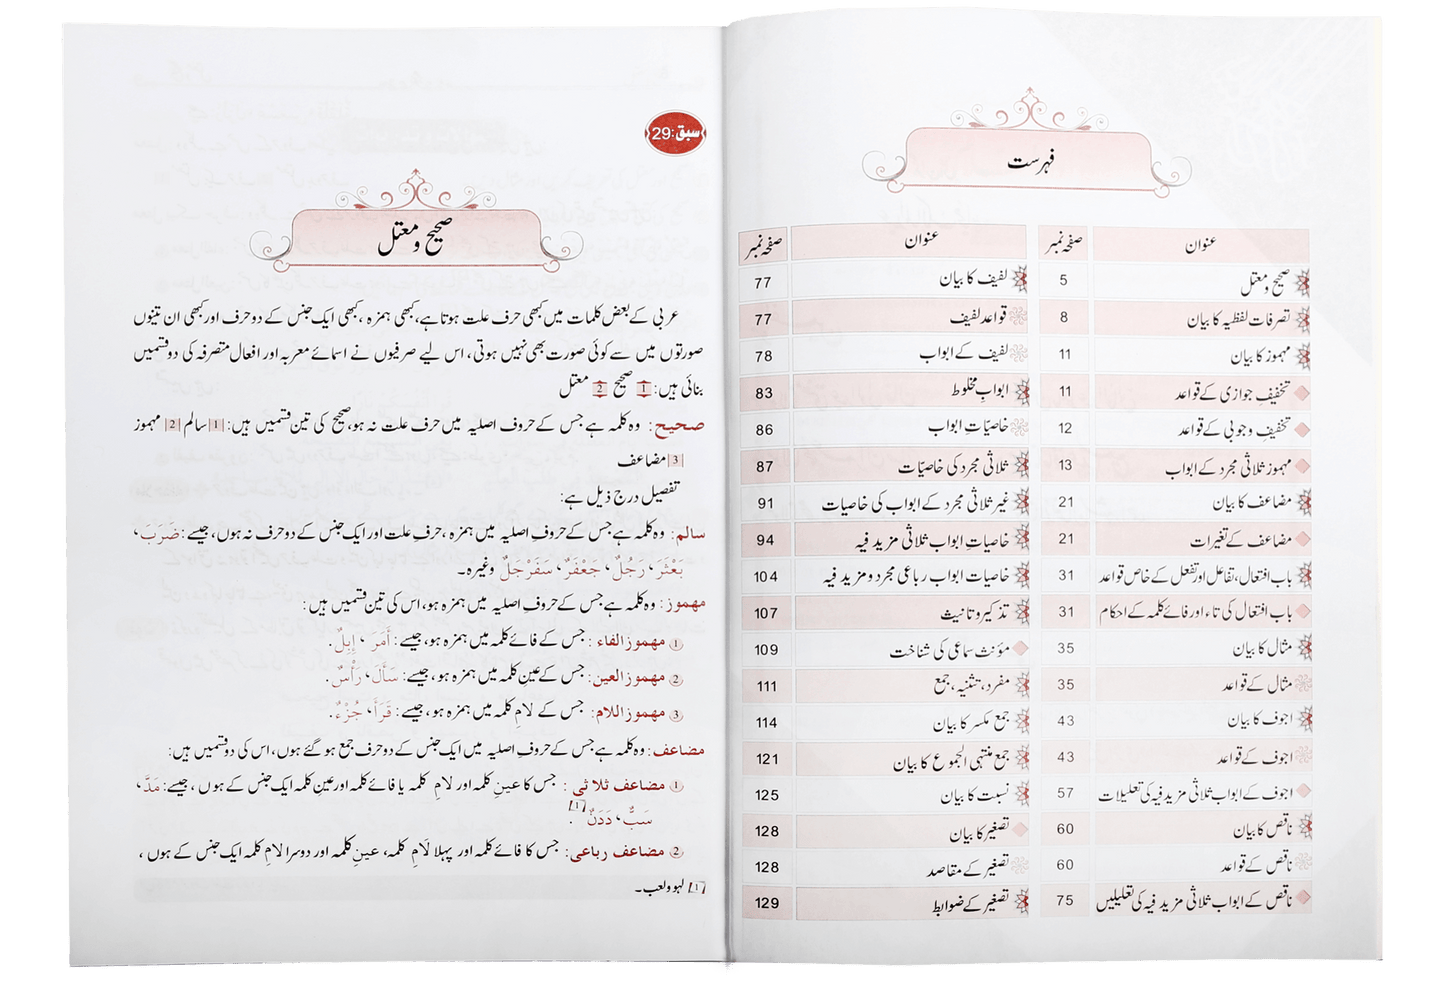 فہرست
عنوان صفحہ نمبر عنوان صفحہ نمبر
صحیح و معتل 5 لفیف کا بیان 77
تصرفات لفظیہ کا بیان 8 قواعد لفیف 77
مہموز کا بیان 11 لفیف کے ابواب 78
تخفیف جوازی کے قواعد 11 ابواب مخلوط 83
تخفیف وجوبی کے قواعد 12 خاصیّات ابواب 86
مہموز ثلاثی مجرد کے ابواب 13 ثلاثی مجرد کی خاصیّات 87
مضاعف کا بیان 21 غیر ثلاثی مجرد کے ابواب کی خاصیات 91
مضاعف کے تغیرات 21 خاصیاتِ ابواب ثلاثی مزید فیہ 94
باب افتعال، تفاعل اور تفعل کے خاص قواعد 31 خاصیات ابواب رباعی مجرد و مزید فیہ 104
باب افتعال کی تاء اور فائے کلمہ کے احکام 31 تذکیر و تانیث 107
مثال کا بیان 35 مؤنث سماعی کی شناخت 109
مثال کے قواعد 35 مفرد، تثنیہ، جمع 111
اجوف کا بیان 43 جمع مکسر کا بیان 114
اجوف کے قواعد 43 جمع منتہی الجموع کا بیان 121
اجوف کے ابواب ثلاثی مزید فیہ کی تعلیلات 57 نسبت کا بیان 125
ناقص کا بیان 60 تصغیر کا بیان 128
ناقص کے قواعد 60 تصغیر کے مقاصد 128
ناقص کے ابواب ثلاثی مزید فیہ کی تعلیلیں 75 تصغیر کے ضوابط 129
سبق:29
صحیح و معتل
عربی کے بعض کلمات میں کبھی حرف علت ہوتا ہے، کبھی ہمزہ، کبھی ایک جنس کے دو حرف اور کبھی ان تینوں
صورتوں میں سے کوئی صورت بھی نہیں ہوتی، اس لیے صرفیوں نے اسمائے معربہ اور افعال متصرفہ کی دو قسمیں
بنائی ہیں: 1 صحیح 2 معتل
صحیح: وہ کلمہ ہے جس کے حروف اصلیہ میں حرف علت نہ ہو، صحیح کی تین قسمیں ہیں: 1 سالم 2 مہموز
3 مضاعف
تفصیل درج ذیل ہے:
سالم: وہ کلمہ ہے جس کے حروفِ اصلیہ میں ہمزہ، حرفِ علت اور ایک جنس کے دو حرف نہ ہوں، جیسے: ضَرَبَ،
بَعْثَرَ، رَجُلٌ، جَعْفَرٌ، سَفَرْجَلٌ وغیرہ۔
مہموز: وہ کلمہ ہے جس کے حروفِ اصلیہ میں ہمزہ ہو، اس کی تین قسمیں ہیں:
① مہموز الفاء: جس کے فائے کلمہ میں ہمزہ ہو، جیسے: أَمَرَ، إِبِلٌ.
② مہموز العین: جس کے عینِ کلمہ میں ہمزہ ہو، جیسے: سَأَلَ، رَأْسٌ.
③ مہموز اللام: جس کے لامِ کلمہ میں ہمزہ ہو، جیسے: قَرَأَ، جُزْءٌ.
مضاعف: وہ کلمہ ہے جس کے حروفِ اصلیہ میں ایک جنس کے دو حرف جمع ہو گئے ہوں، اس کی دو قسمیں ہیں:
① مضاعف ثلاثی: جس کا عینِ کلمہ اور لامِ کلمہ یا فائے کلمہ اور عینِ کلمہ ایک جنس کے ہوں، جیسے: مَدَّ،
سَبٌّ، دَدَنٌ [1].
② مضاعف رباعی: جس کا فائے کلمہ اور پہلا لامِ کلمہ، عینِ کلمہ اور دوسرا لامِ کلمہ ایک جنس کے ہوں،
[1] لہو ولعب۔